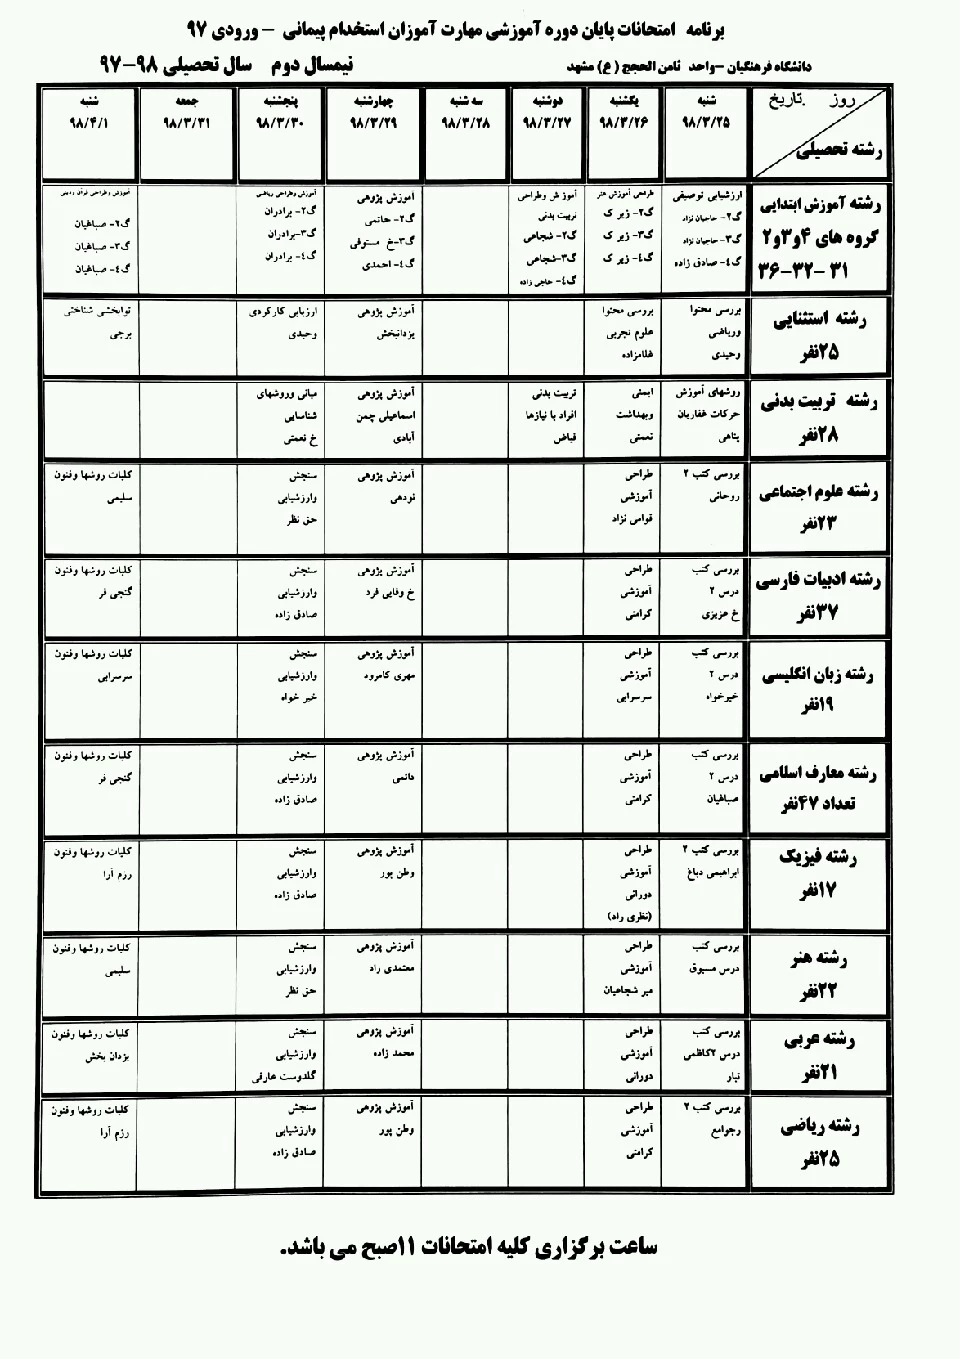 برنامه امتحانات پایان دوره آموزشی مهارت آموزان استخدام پیمانی - ورودی ۹۷
دانشگاه فرهنگیان -واحد ثامن الحجج (ع) مشهد نیمسال دوم سال تحصیلی ۹۸-۹۷
روز تاریخ
رشته تحصیلی
شنبه
۹۸/۳/۲۵
یکشنبه
۹۸/۳/۲۶
دوشنبه
۹۸/۳/۲۷
سه شنبه
۹۸/۳/۲۸
چهارشنبه
۹۸/۳/۲۹
پنجشنبه
۹۸/۳/۳۰
جمعه
۹۸/۳/۳۱
شنبه
۹۸/۴/۱
رشته آموزش ابتدایی
گروه های ۴و۳و۲
۳۱-۳۲-۳۶
ارزشیابی توصیفی
گ۲- حاجیان نژاد
گ۳- حاجیان نژاد
گ۴- صادق زاده
طراحی آموزش هنر
گ۲- زیر ک
گ۳- زیر ک
گ۴- زیر ک
آموزش وطراحی
تربیت بدنی
گ۲- شجاعی
گ۳-شجاعی
گ۴- حاجی زاده
آموزش پژوهی
گ۲- حاتمی
گ۳-خ مستوفی
گ۴- احمدی
آموزش وطراحی ریاضی
گ۲- برادران
گ۳-برادران
گ۴- برادران
آموزش وطراحی قرآن ودینی
صباغیان
گ۳- صباغیان
گ۴- صباغیان
رشته استثنایی
۲۵نفر
بررسی محتوا
وریاضی
وحیدی
بررسی محتوا
علوم تجربی
غلامزاده
آموزش پژوهی
یزدانبخش
ارزیابی کارکردی
وحیدی
توانبخشی شناختی
برجی
رشته تربیت بدنی
۲۸نفر
روشهای آموزش
حرکات غفاریان
پناهی
ایمنی
وبهداشت
نعمتی
تربیت بدنی
افراد با نیازها
فیاض
آموزش پژوهی
اسماعیلی چمن
آبادی
مبانی وروشهای
شناسایی
خ نعمتی
رشته علوم اجتماعی
۲۳نفر
بررسی کتب ۲
روحانی
طراحی
آموزشی
قوامی نژاد
آموزش پژوهی
نودهی
سنجش
وارزشیابی
حق نظر
کلیات روشها وفنون
سلیمی
رشته ادبیات فارسی
۳۷نفر
بررسی کتب
درس ۲
خ عزیزی
طراحی
آموزشی
کرامتی
آموزش پژوهی
خ وفایی فرد
سنجش
وارزشیابی
صادق زاده
کلیات روشها وفنون
گنجی فر
رشته زبان انگلیسی
۱۹نفر
بررسی کتب
درس ۲
خیرخواه
طراحی
آموزشی
سرسرابی
آموزش پژوهی
مهری کامرود
سنجش
وارزشیابی
خیر خواه
کلیات روشها وفنون
سرسرابی
رشته معارف اسلامی
تعداد ۴۷نفر
بررسی کتب
درس ۲
صباغیان
طراحی
آموزشی
کرامتی
آموزش پژوهی
هاتمی
سنجش
وارزشیابی
صادق زاده
کلیات روشها وفنون
گنجی فر
رشته فیزیک
۱۷نفر
بررسی کتب ۲
ابراهیمی دباغ
طراحی
آموزشی
دورانی
(نظری راد)
آموزش پژوهی
وطن پور
سنجش
وارزشیابی
صادق زاده
کلیات روشها وفنون
رزم آرا
رشته هنر
۲۲نفر
بررسی کتب
درس مسبوق
طراحی
آموزشی
میر شجاعیان
آموزش پژوهی
معتمدی راد
سنجش
وارزشیابی
حق نظر
کلیات روشها وفنون
سلیمی
رشته عربی
۲۱نفر
بررسی کتب
درس ۲کاظمی
تبار
طراحی
آموزشی
دورانی
آموزش پژوهی
محمد زاده
سنجش
وارزشیابی
گلدوست عارفی
کلیات روشها وفنون
یزدان بخش
رشته ریاضی
۲۵نفر
بررسی کتب ۲
رجوامع
طراحی
آموزشی
کرامتی
آموزش پژوهی
وطن پور
سنجش
وارزشیابی
صادق زاده
کلیات روشها وفنون
رزم آرا
ساعت برگزاری کلیه امتحانات ۱۱صبح می باشد.